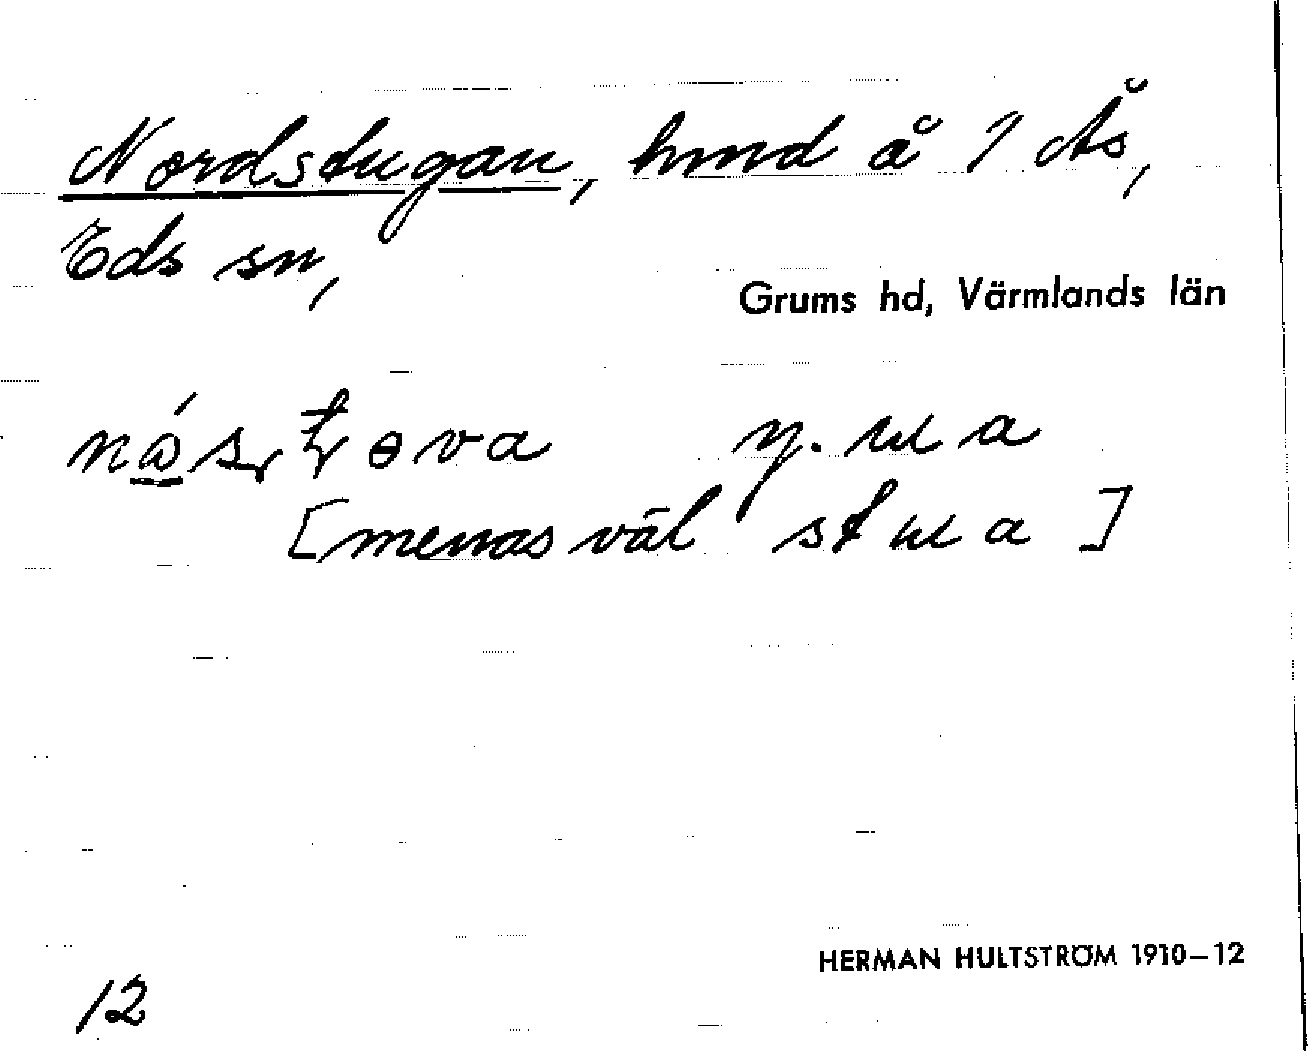 Nordstugan, hmd å 1 Ås,
Eds sn,
Grums hd, Värmlands län
[menas väl
HERMAN HULTSTRÖM 1910–12
12